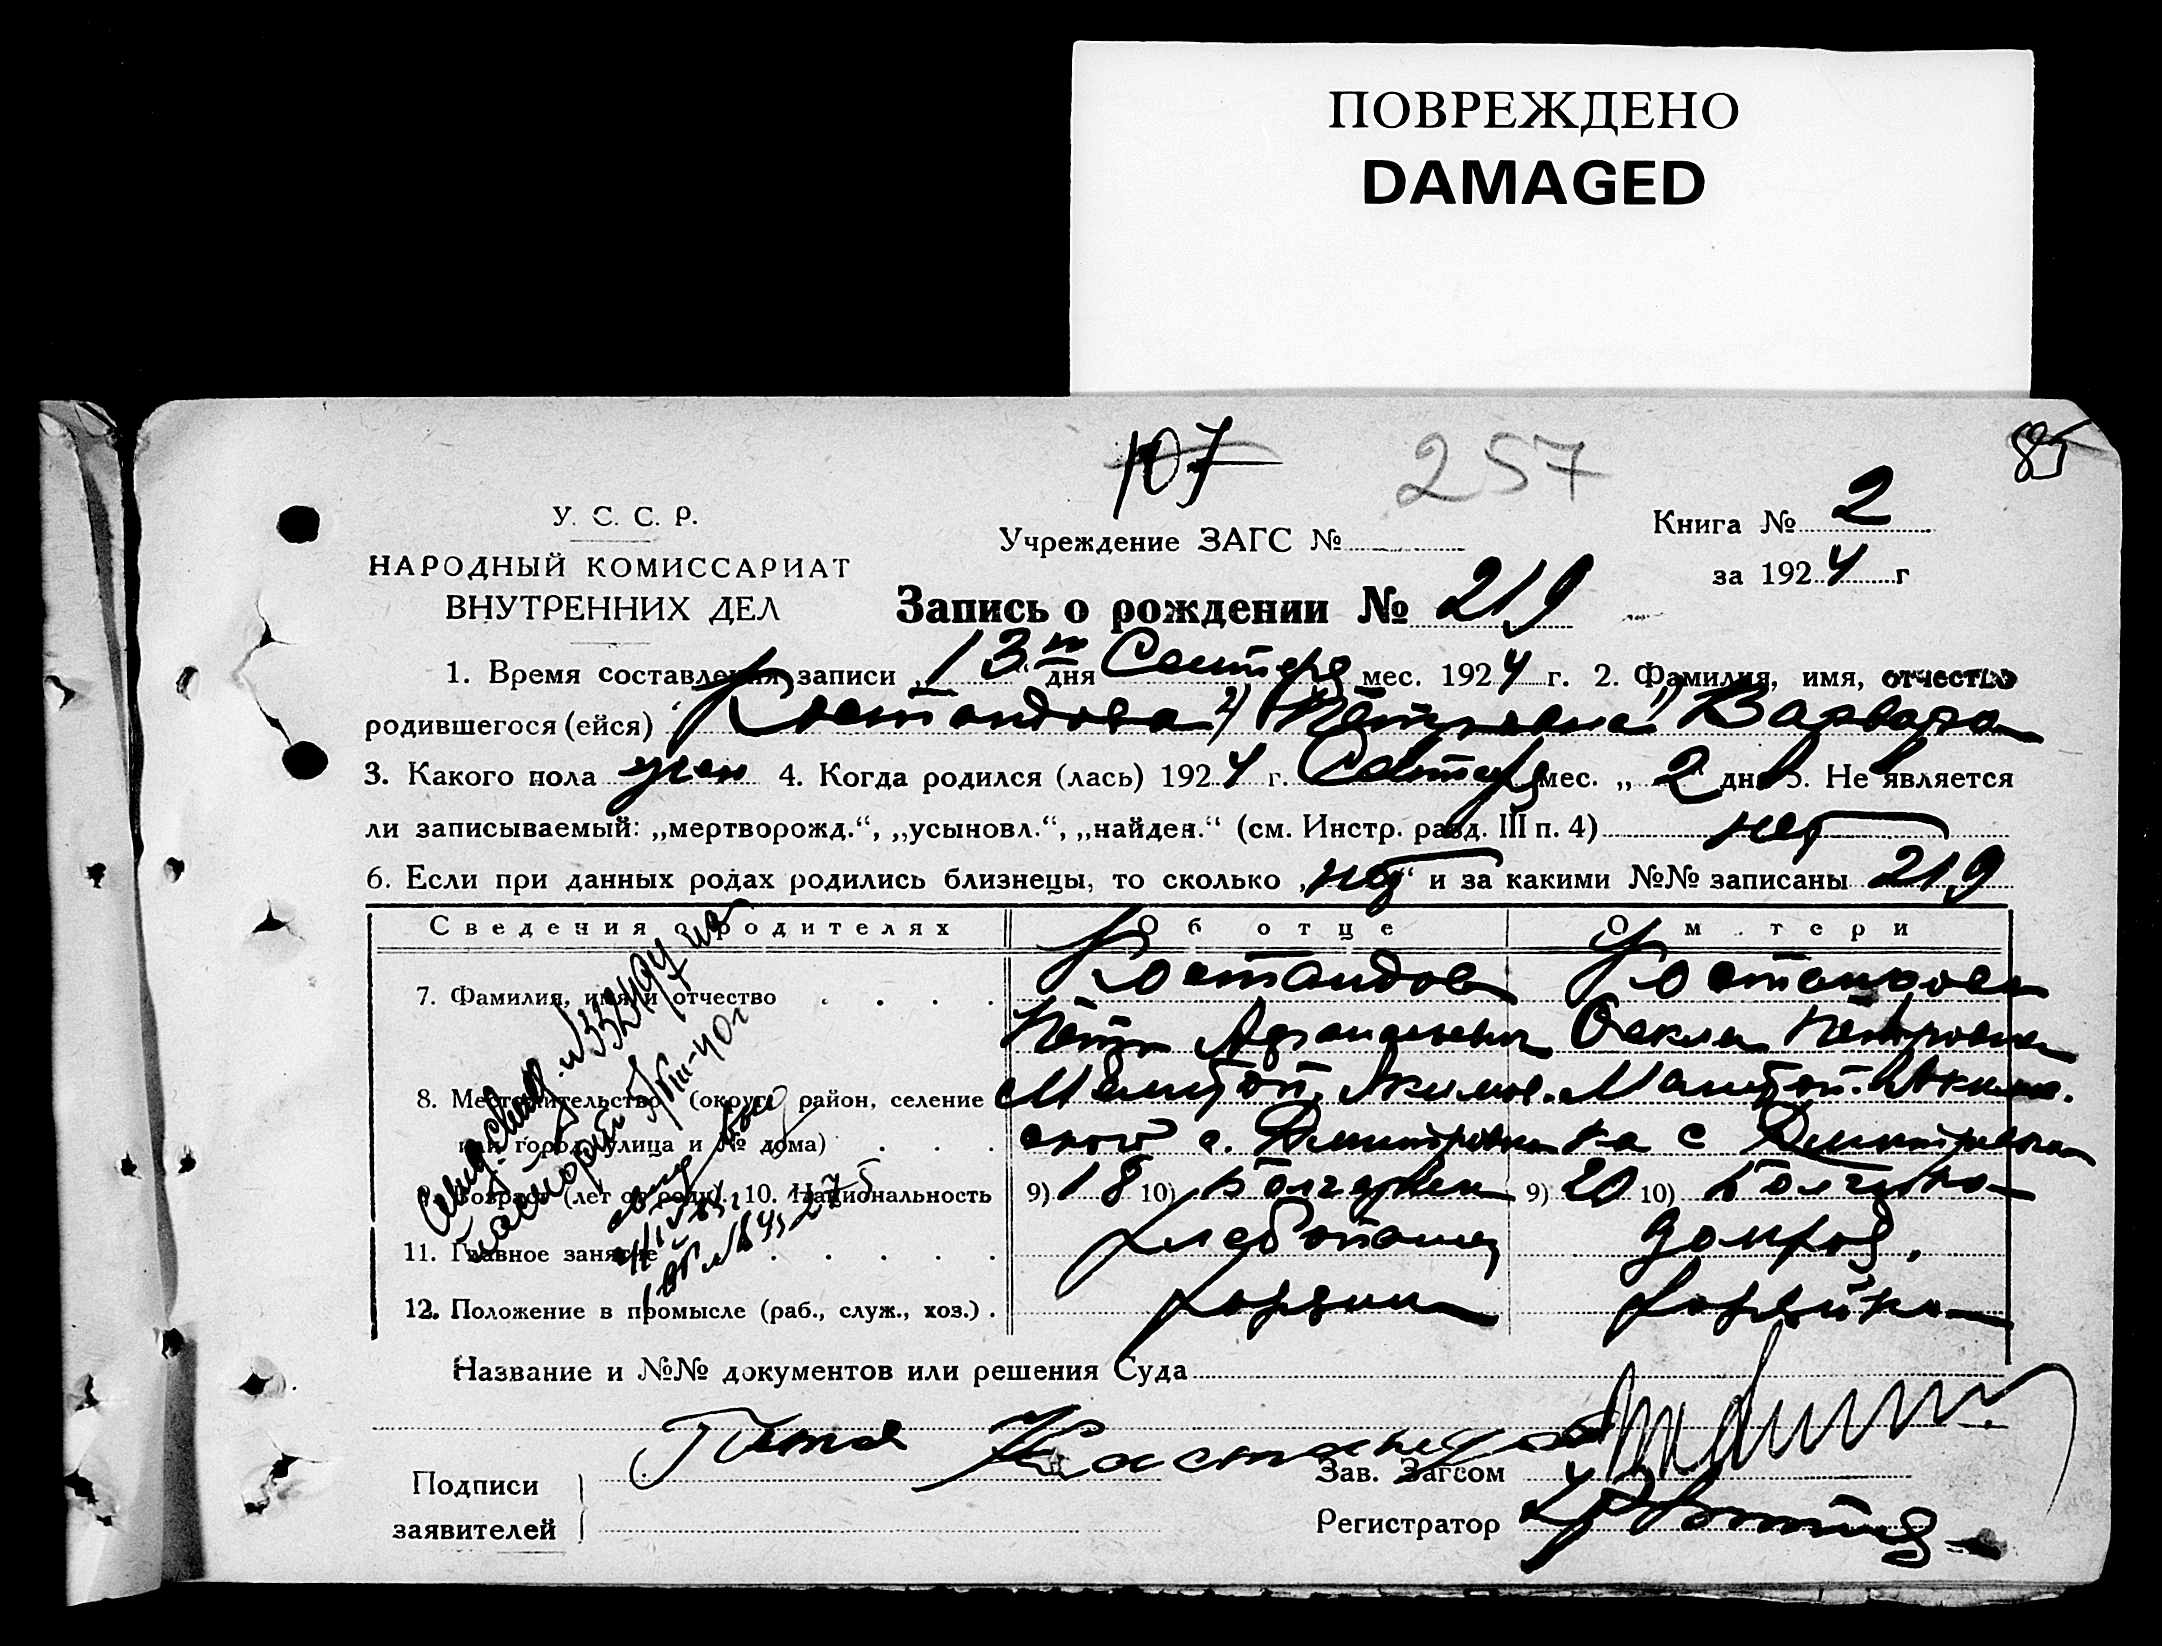 ПОВРЕЖДЕНО
DAMAGED
107
257
85
У. С. С. Р.
НАРОДНЫЙ КОМИССАРИАТ
ВНУТРЕННИХ ДЕЛ
Учреждение ЗАГС №
Книга № 2
за 1924 г
Запись о рождении № 219
1. Время составления записи „13го“ дня Сентебря мес. 1924 г. 2. Фамилия, имя, отчество
родившегося (ейся) Костандова Петровна Варвара
3. Какого пола жен 4. Когда родился (лась) 1924 г. Сентебря мес. „2“ дня 5. Не является
ли записываемый: „мертворожд.“, „усыновл.“, „найден.“ (см. Инстр. разд. III п. 4) нет
6. Если при данных родах родились близнецы, то сколько „нет“ и за какими №№ записаны 219
Сведения о родителях Об отце О матери
7. Фамилия, имя и отчество Костандов Костандова
Петр Афанасьевич Фекла Петровна
8. Местожительство (округ, район, селение
или город, улица и № дома) ской с. Дмитровка с Дмитровка
9. Возраст (лет от роду). 10. Национальность 9) 18 10) Болгарин 9) 20 10) Болгарка
11. Главное занятие хлебопашец домхоз.
12. Положение в промысле (раб., служ., хоз.) . хозяин хозяйка
Название и №№ документов или решения Суда
Подписи
заявителей
Петя Костандов
Зав. Загсом
Регистратор